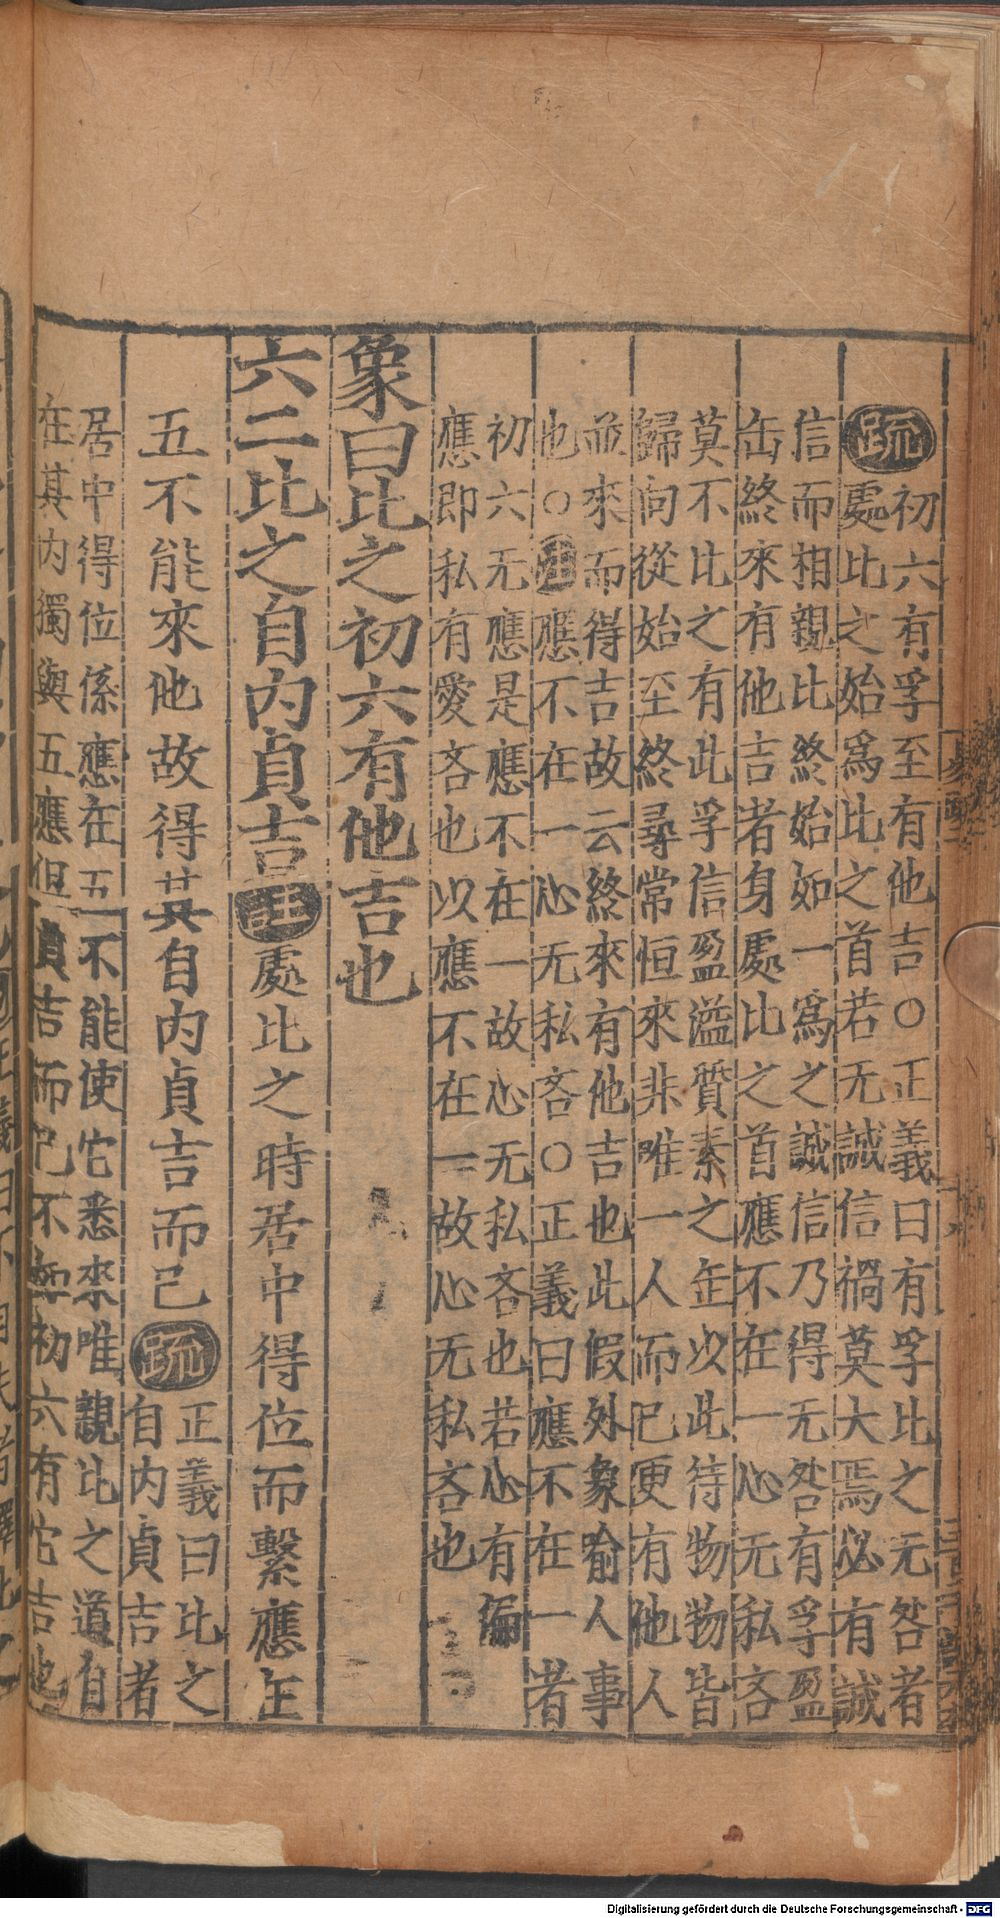 疏
初六有孚至有他吉○正義曰有孚比之无咎者
處比之始爲比之首若无誠信禍莫大焉必有誠
信而相親比終始如一爲之誠信乃得无咎有孚盈
缶終來有他吉者身處比之首應不在一心无私吝
莫不比之有此孚信盈溢質素之缶以此待物物皆
歸向從始至終尋常恒來非唯一人而已更有他人
並來而得吉故云終來有他吉也此假外象喻人事
也○注應不在一心无私吝○正義曰應不在一者
初六无應是應不在一故心无私吝也若心有偏
應即私有愛吝也以應不在一故心无私吝也
象曰比之初六有他吉也
六二比之自內貞吉注處比之時居中得位而繫應在
五不能來他故得其自內貞吉而已疏
正義曰比之
自內貞吉者
居中得位係應在五不能使它悉來唯親比之道自
在其內獨與五應但貞吉而已不如初六有它吉也
Digitalisierung gefördert durch die Deutsche Forschungsgemeinschaft - DFG